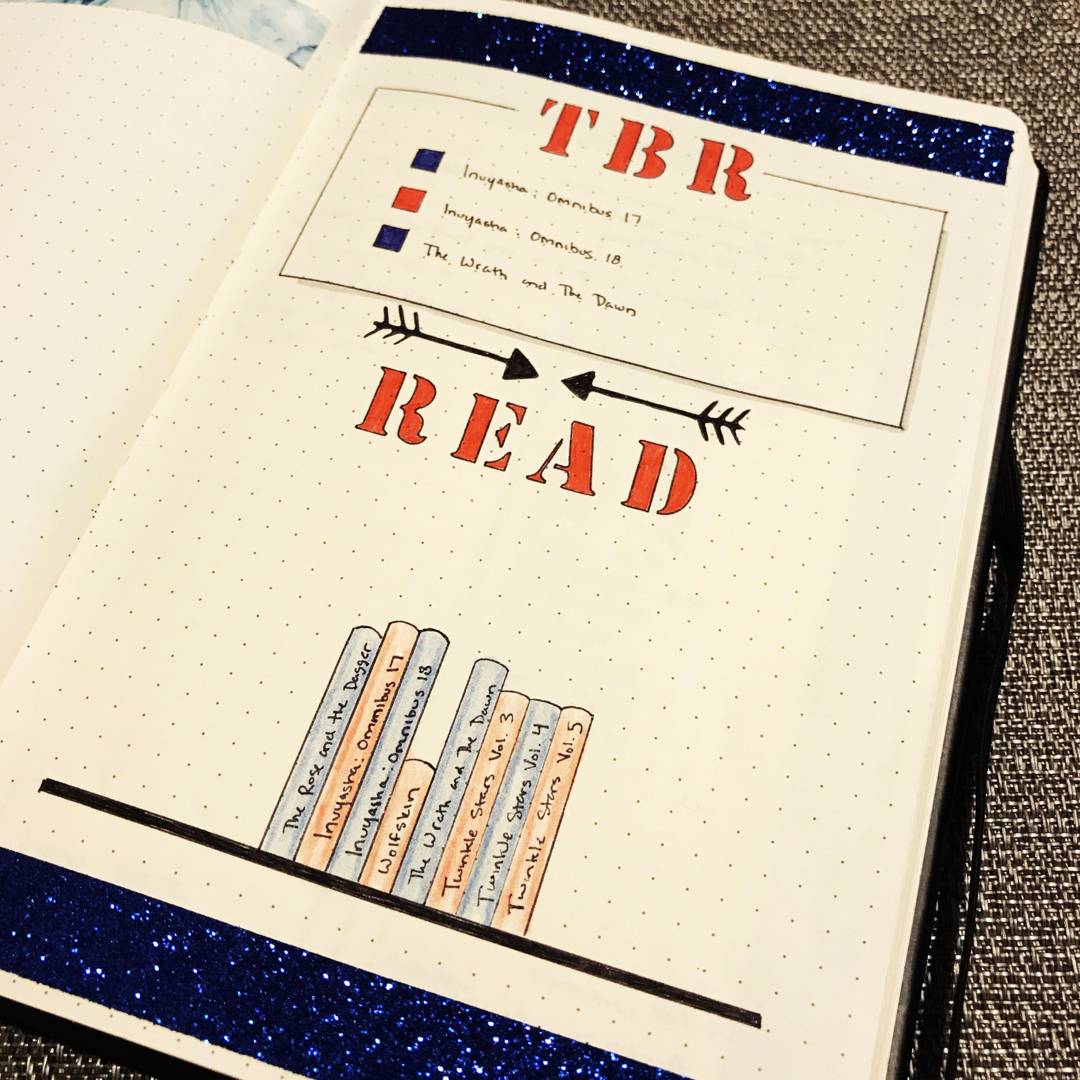 TBR
Inuyasha: Omnibus 17
Inuyasha: Omnibus 18
The Wrath and The Dawn
READ
The Rose and the Dagger
Inuyasha: Ommibus 17
Inuyasha: Omnibus 18
Wolfskin
The Wrath and The Dawn
Twinkle Stars Vol. 3
Twinkle Stars Vol. 4
Twinkle Stars Vol. 5